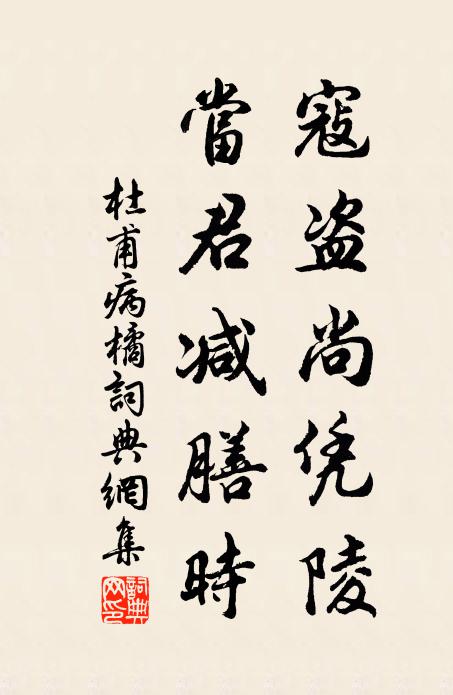 寇盗尚凭陵
當君减膳時
杜甫病橘詞典網集
詞典网印